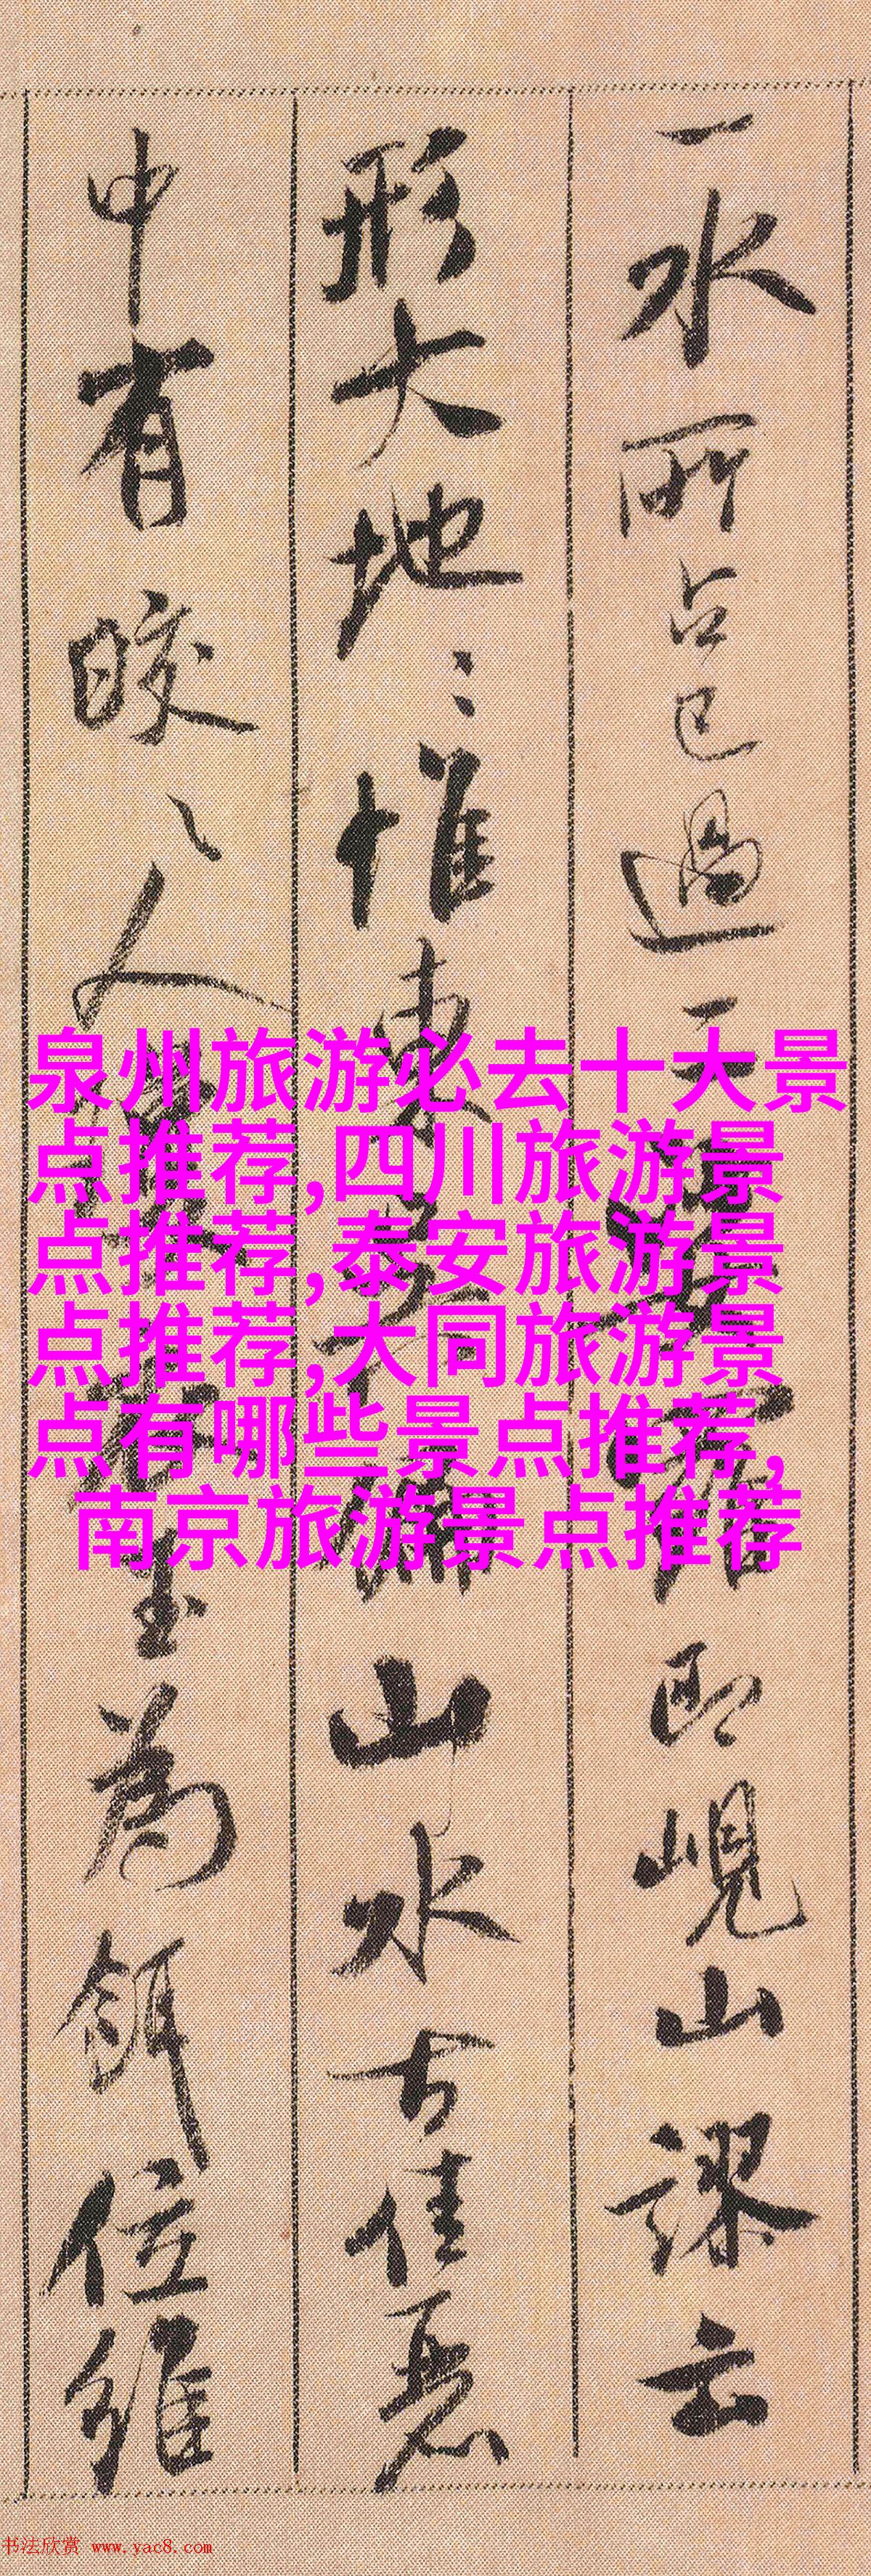 一水所占已過
即峴山謬云
形大地〻惟東
山水古佳惡
中有皎〻人
玉為餌位維
泉州旅游必去十大景
点推荐,四川旅游景
点推荐,泰安旅游景
点推荐,大同旅游景
点有哪些景点推荐,
南京旅游景点推荐
书法欣赏 www.yac8.com